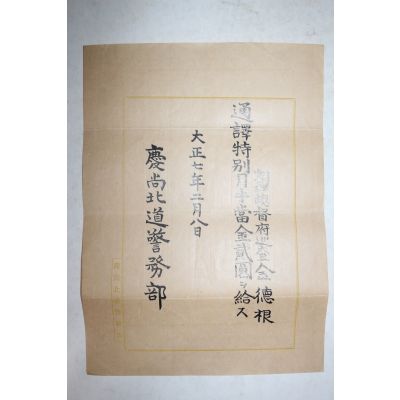 朝鮮總督府巡査金德根
通譯特別月手當金貳圓ヲ給ス
大正七年二月八日
慶尚北道警務部